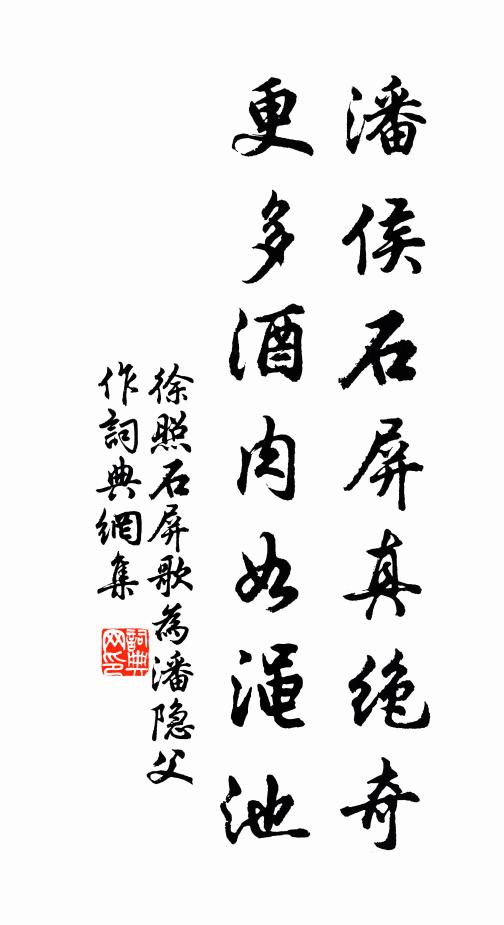 潘侯石屏真绝奇
更多酒肉如渑池
徐照石屏歌為潘隐父
作詞典網集
詞典网印